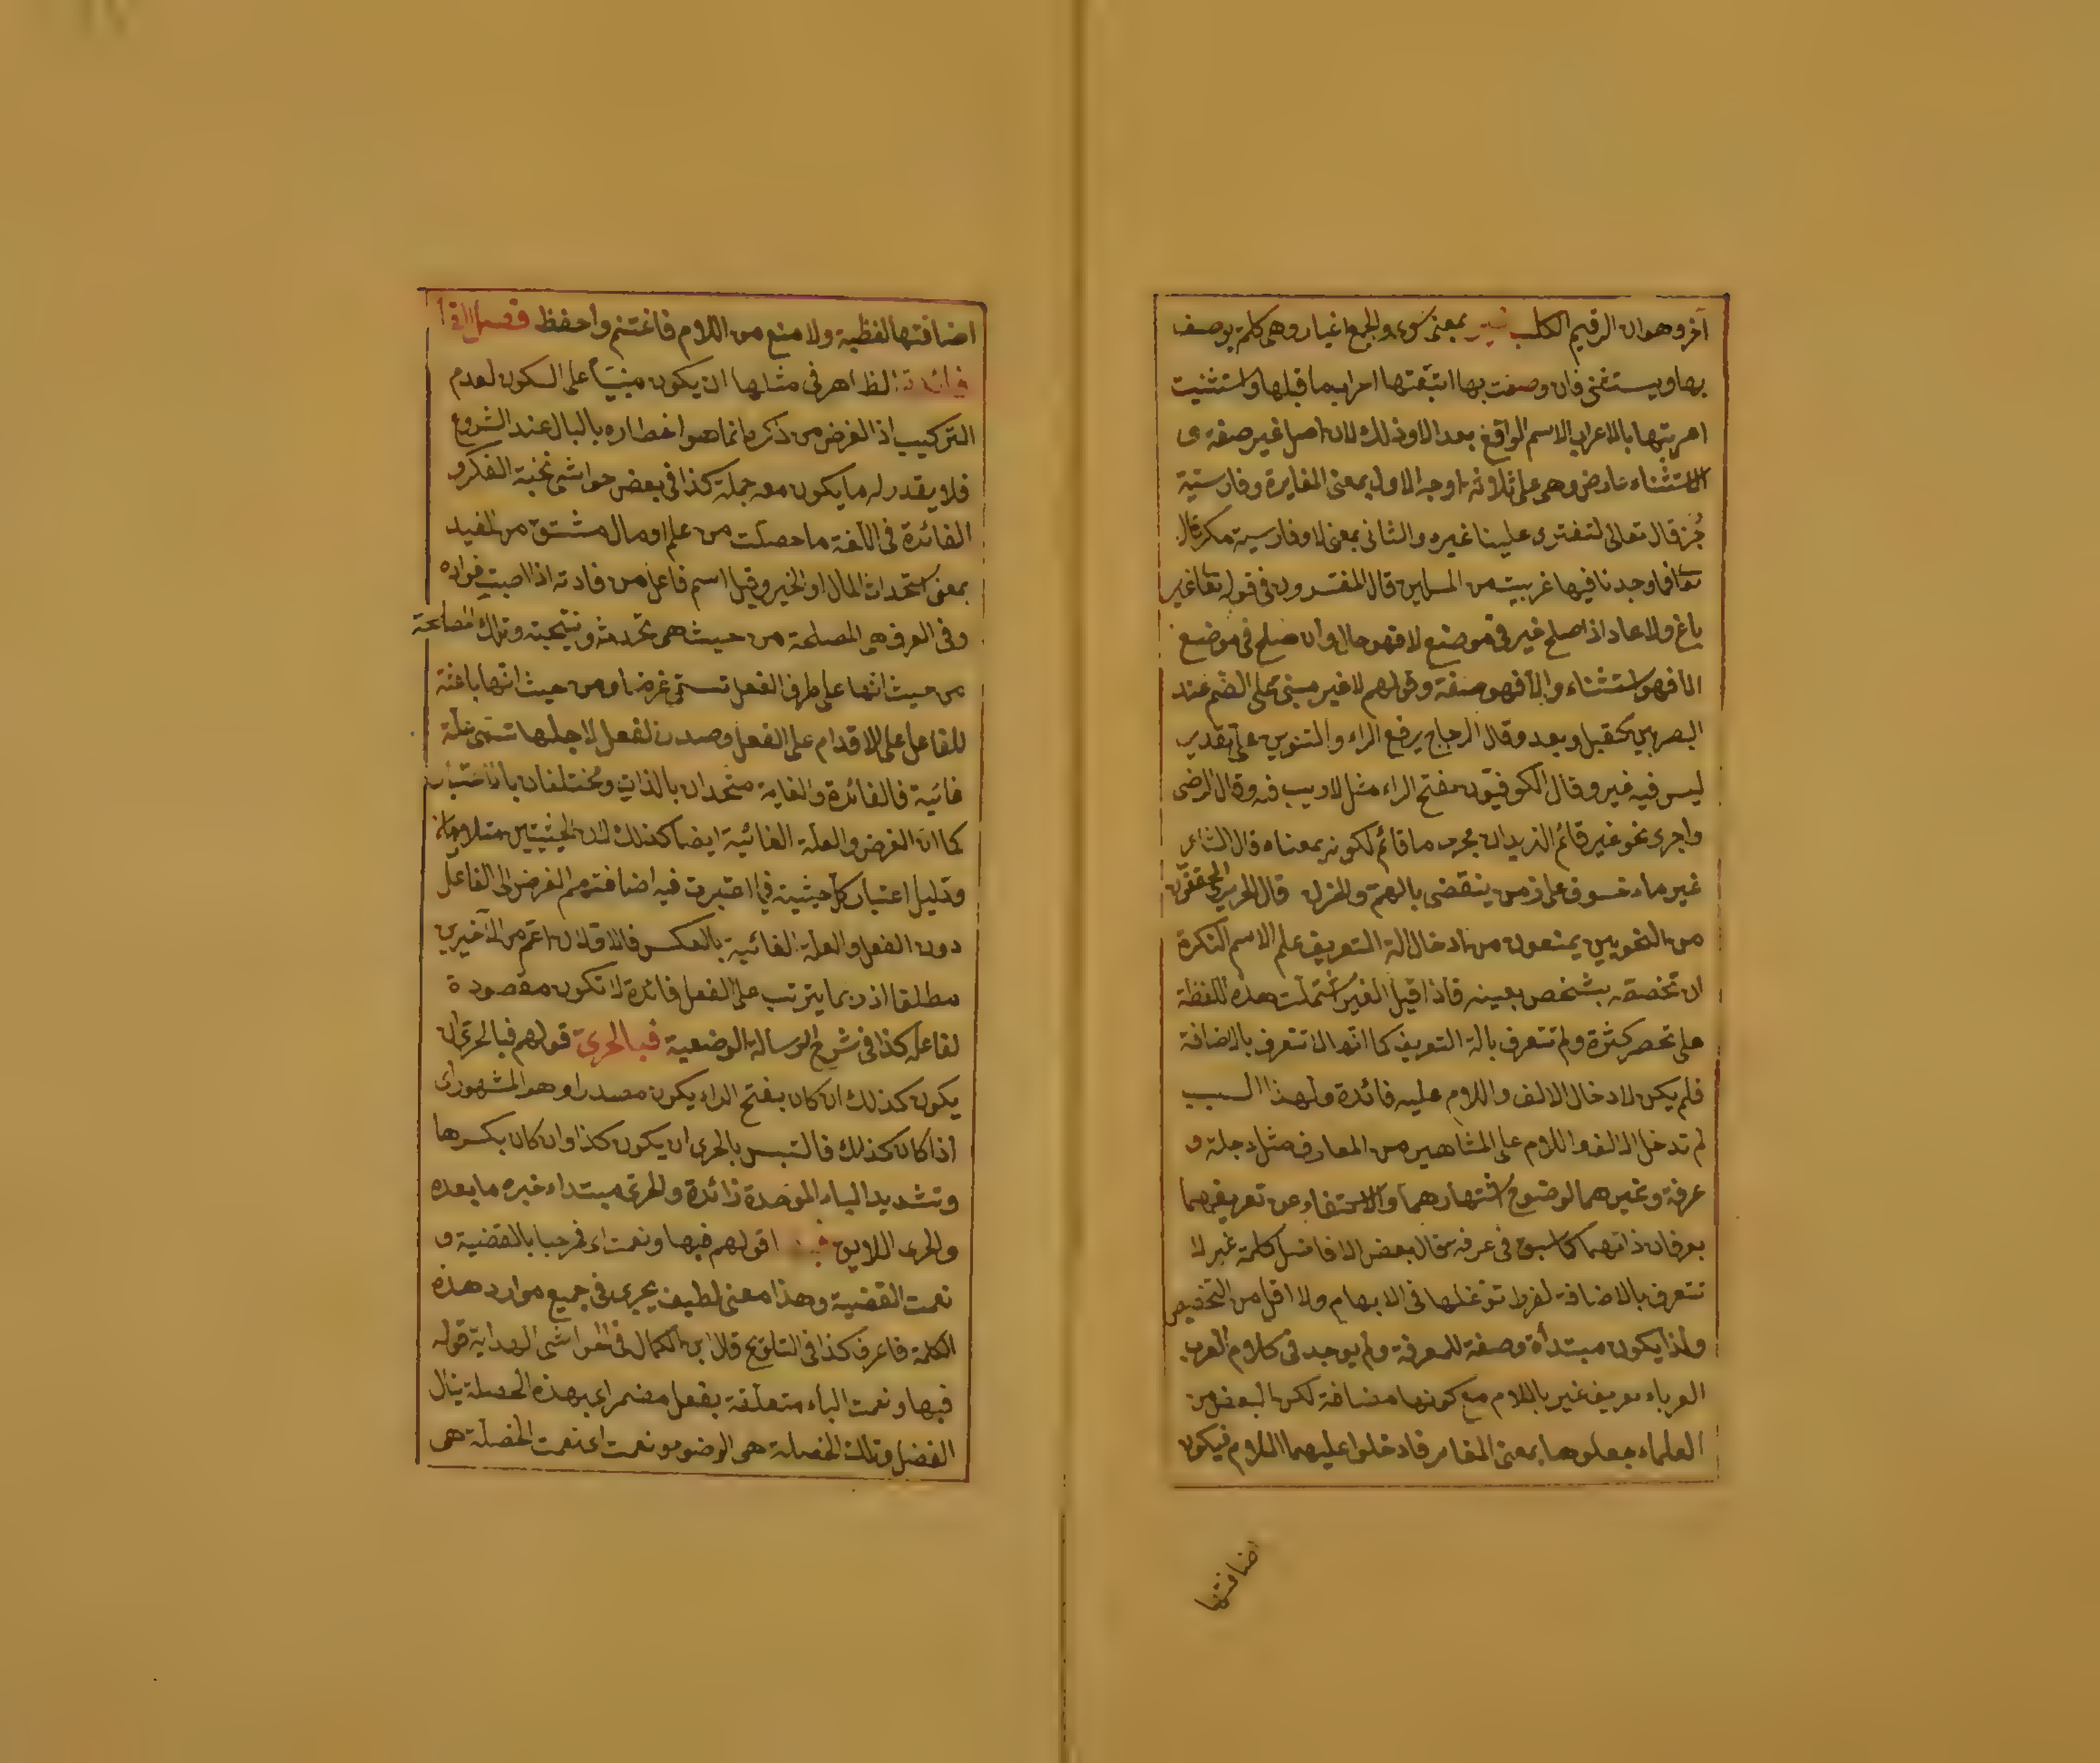 آخر وهو ان الرقيم الكلب غير بمعنى سوى والجمع اغيار وهى كلمة يوصف
بها ويستثنى فان وصفت بها اتبعتها اعراب ما قبلها وان استثنيت
اعربتها بالاعراب الاسم الواقع بعد الا وذلك لان اصل غير صفة و
الاستثناء عارض وهى على ثلاثة اوجه الاول بمعنى المغايرة وفارسية
جُز قال تعالى لتفترى علينا غيره والثانى بمعنى لا وفارسية مكر قال
تعا فما وجدنا فيها غير بيت من المسلمين قال المفسرون فى قوله تعا غير
باغ ولا عاد اذا صلح غير فى موضع لا فهو حال وان صلح فى موضع
الا فهو استثناء والا فهو صفة وقولهم لا غير مبنى على الضم عند
البصريين كقبل وبعد وقال الزجاج يرفع الراء والتنوين على تقدير
ليس فيه غير وقال الكوفيون بفتح الراء مثل لا ريب فيه وقال الرضى
واجرى نحو غير قائم الزيدان مجرى ما قائم لكونه بمعناه قال الشاعر
غير ماءسوف على زمن ينقضى بالهم والحزن قال الحريرى المحققون
من النحويين يمنعون من ادخال الة التعريف على الاسم النكرة
ان تخصصه بشخص بعينه فاذا قيل الغير اشتملت هذه اللفظة
على تحصر كثرة ولم تتعرف بالة التعريف كما انها لا تتعرف بالاضافة
فلم يكن لادخال الالف واللام عليه فائدة ولهذا السبب
لم تدخل الالف واللام على المشاهير من المعارف مثل دجلة و
عرفة وغيرهما لوضوح اشتهارهما والاكتفاء عن تعريفهما
بعرفان ذاتهما كما سبق فى عرفة قال بعض الافاضل كلمة غير لا
تتعرف بالاضافة لفرط توغلها فى الابهام ولا اقل من التخصيص
ولذا يكون مبتدأة وصفة للمعرفة ولم يوجد فى كلام العرب
العرباء تعريف غير باللام مع كونها مضافة لكن البعض من
العلماء جعلوها بمعنى المغاير فادخلوا عليهما اللام فيكون
اضافتها
اضافتها لفظية ولا منع من اللام فاغتنم واحفظ فصل الفا
فائدة الظاهر فى مثلها ان يكون مبنيا على السكون لعدم
التركيب اذ الغرض من ذكره انما هو اخطاره بالبال عند الشروع
فلا يقدر له ما يكون معه جملة كذا فى بعض حواشى نخبة الفكر و
الفائدة فى اللغة ما حصلت من علم او مال مشتق من الفيد
بمعنى استحداث المال او الخير وقيل اسم فاعل من فادته اذا اصبت فواده
وفى العرف هو المصلحة من حيث هى ثمرته ونتيجته وتلك المصلحة
من حيث انها على طرف الفعل تسمى غرضا ومن حيث انها باعثة
للفاعل على الاقدام على الفعل وصدور الفعل لاجلها تسمى علة
غائية فالفائدة والغاية متحدان بالذات ومختلفان بالاعتبار
كما ان الغرض والعلة الغائية ايضا كذلك لان الحيثيتين متلازمان
ودليل اعتبار كل حيثية فيما اعتبرت فيه اضافتهم الغرض الى الفاعل
دون الفعل والعلة الغائية بالعكس فالاولان اعم من الاخيرين
مطلقا اذ ربما يترتب على الفعل فائدة لا تكون مقصودة
لفاعله كذا فى شرح الرسالة الوضعية فبالحرى قولهم فبالحرى ان
يكون كذلك ان كان بفتح الراء يكون مصدرا وهو المشهور اى
اذا كان كذلك فالتبس بالحرى ان يكون كذا وان كان بكسرها
وتشديد الياء الموحدة زائدة والحرى مبتداء خبره ما بعده
والحرى اللايق قولهم فبها ونعمت اى فمرحبا بالقضية و
نعمت القضية وهذا معنى لطيف يجرى فى جميع موارد هذه
الكلمة فاعرف كذا فى التلويح قال ابن الكمال فى الحواشى الهداية قوله
فبها ونعمت الباء متعلقة بفعل مضمر اى بهذه الخصلة ينال
الفضل وتلك الخصلة هى الوضوء ونعمت اى نعمت الخصلة هى